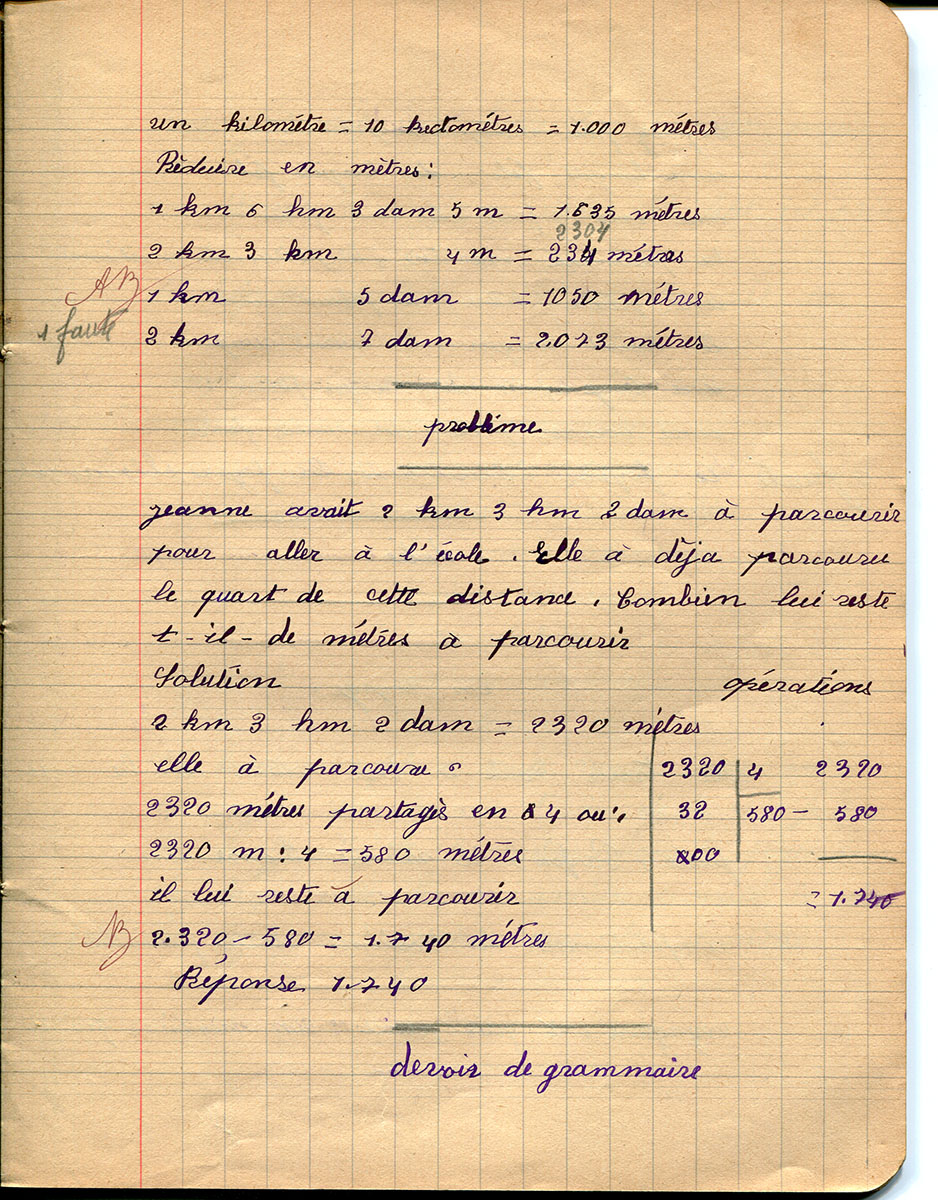 un kilomètre = 10 hectomètres = 1.000 mètres
Rèduire en mètres :
1 km 6 hm 3 dam 5 m = 1.635 métres
2304
2 km 3 km 4 m = 234 métres
AB
1 km 5 dam = 1050 métres
1 faute
2 km 7 dam = 2.073 métres
problème
jeanne avait 2 km 3 hm 2 dam à parcourir
pour aller à l'école. Elle à dèja parcouru
le quart de cette distance. Combien lui reste
t-il-de métres à parcourir
Solution opérations
2 km 3 hm 2 dam = 2320 métres
elle à parcouru 2320 4 2320
2320 métres partagès en 4 ou : 32 580 - 580
2320 m : 4 = 580 métres 00
il lui reste à parcourir = 1.740
B 2.320 - 580 = 1.740 métres
Réponse 1.740
devoir de grammaire